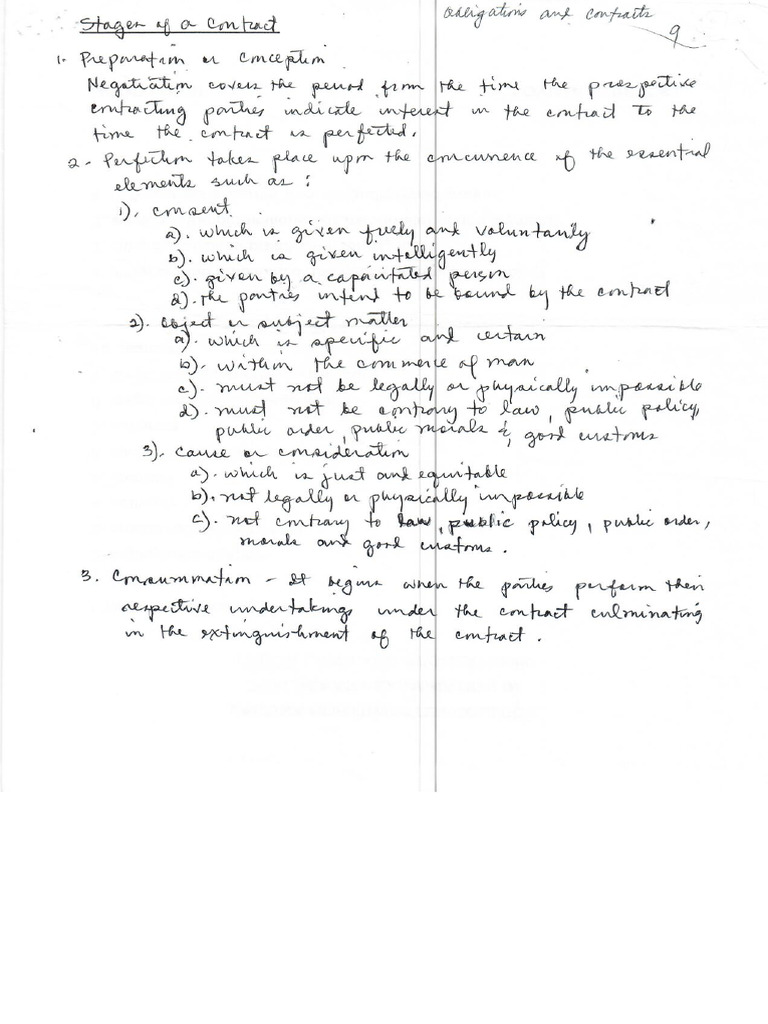 Obligations and Contracts
9
Stages of a Contract
1. Preparation or conception
Negotiation covers the period from the time the prospective
contracting parties indicate interest in the contract to the
time the contract is perfected.
2 - Perfection takes place upon the concurrence of the essential
elements such as :
1). consent
a). which is given freely and voluntarily
b). which is given intelligently
c). given by a capacitated person
d). the parties intend to be bound by the contract
2). object or subject matter
a). which is specific and certain
b). within the commerce of man
c). must not be legally or physically impossible
d). must not be contrary to law, public policy,
public order, public morals &, good customs
3). cause or consideration
a). which is just and equitable
b). not legally or physically impossible
c). not contrary to law, public policy, public order,
morals and good customs.
3. Consummation - It begins when the parties perform their
respective undertakings under the contract culminating
in the extinguishment of the contract.